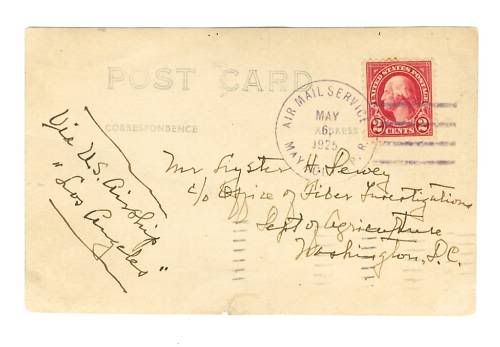 POST CARD
CORRESPONDENCE
ADDRESS
UNITED STATES POSTAGE
2 CENTS 2
AIR MAIL SERVICE
MAY
6
1925
MAY
P.R.
Via U.S. Airship
"Los Angeles"
Mr Lyster H. Dewey
c/o Office of Fiber Investigations
Dept of Agriculture
Washington, D.C.